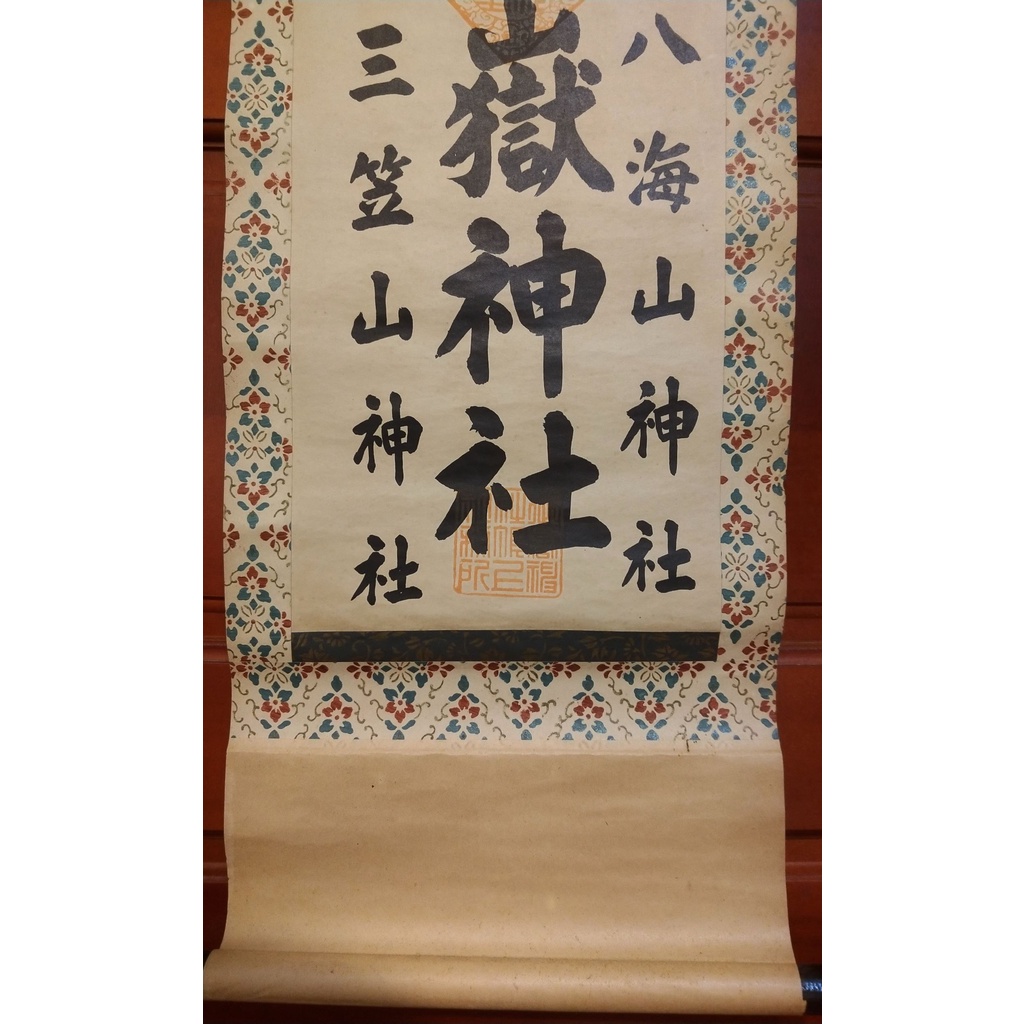 八海山神社
山嶽神社
三笠山神社